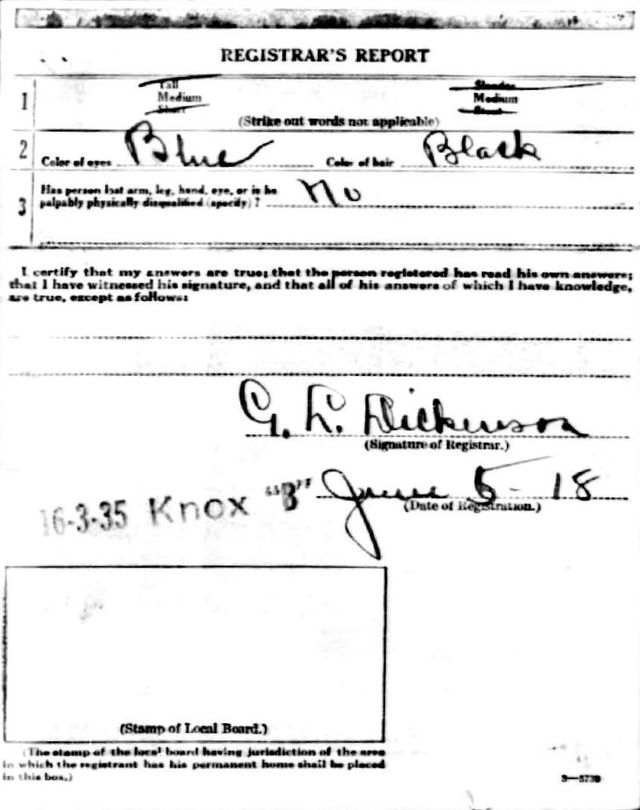 REGISTRAR'S REPORT
1 Tall Slender
Medium Medium
Short Stout
(Strike out words not applicable)
2 Color of eyes Blue Color of hair Black
3 Has person lost arm, leg, hand, eye, or is he
palpably physically disqualified (specify)? No
I certify that my answers are true; that the person registered has read his own answers;
that I have witnessed his signature, and that all of his answers of which I have knowledge,
are true, except as follows:
G. L. Dickinson
(Signature of Registrar.)
16-3-35 Knox "B" June 5-18
(Date of Registration.)
(Stamp of Local Board.)
(The stamp of the local board having jurisdiction of the area
in which the registrant has his permanent home shall be placed
in this box.)
3—5739